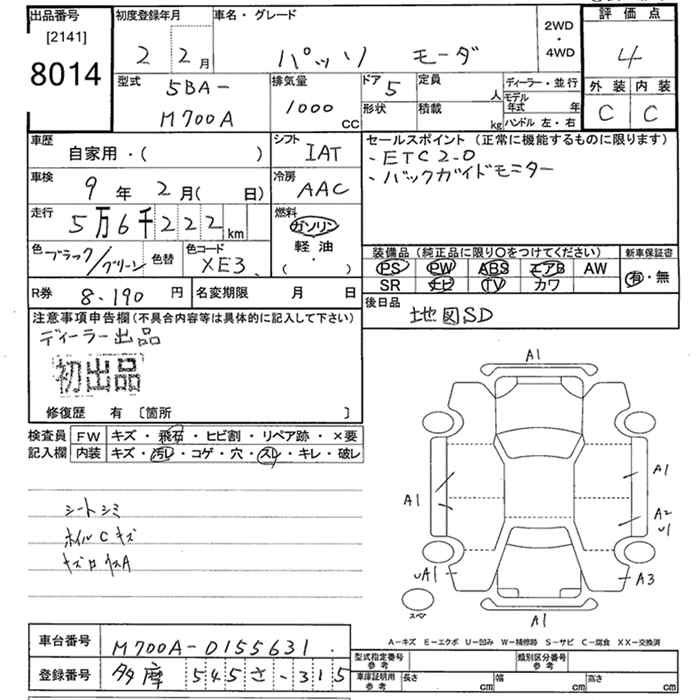 出品番号
[2141]
8014
初度登録年月
2 2月
車名・グレード
パッソ モーダ
2WD
・
4WD
評価点
4
外装 内装
C C
型式
5BA-
M700A
排気量
1000
CC
ドア 5
形状
定員
人
積載
kg
ディーラー・並行
モデル
年式 年
ハンドル 左・右
車歴
自家用・( )
シフト
IAT
セールスポイント (正常に機能するものに限ります)
・ETC2.0
・バックガイドモニター
車検
9年 2月( 日)
冷房
AAC
走行
5万6千222km
燃料
ガソリン
軽油
( ・ )
色 ブラック/グリーン
色替
色コード
XE3
装備品(純正品に限り○をつけてください)
PS PW ABS エアB AW
SR ナビ TV カワ
新車保証書
有・無
R券 8.190円
名変期限 月 日
後日品
地図SD
注意事項申告欄(不具合内容等は具体的に記入して下さい)
ディーラー出品
初出品
修復歴 有 [箇所 ]
検査員
記入欄
FW キズ・飛石・ヒビ割・リペア跡・×要
内装 キズ・汚レ・コゲ・穴・スレ・キレ・破レ
シートシミ
ホイルCキズ
A1
A1
A1
A2
U1
UA1
A3
スペア
A1
A-キズ E-エクボ U-凹み W-補修跡 S-サビ C-腐食 XX-交換済
車台番号
M700A-0155631
登録番号
多摩 545 さ-315
型式指定番号
参考
類別区分番号
参考
車庫証明用
参考
長さ cm
幅 cm
高さ cm